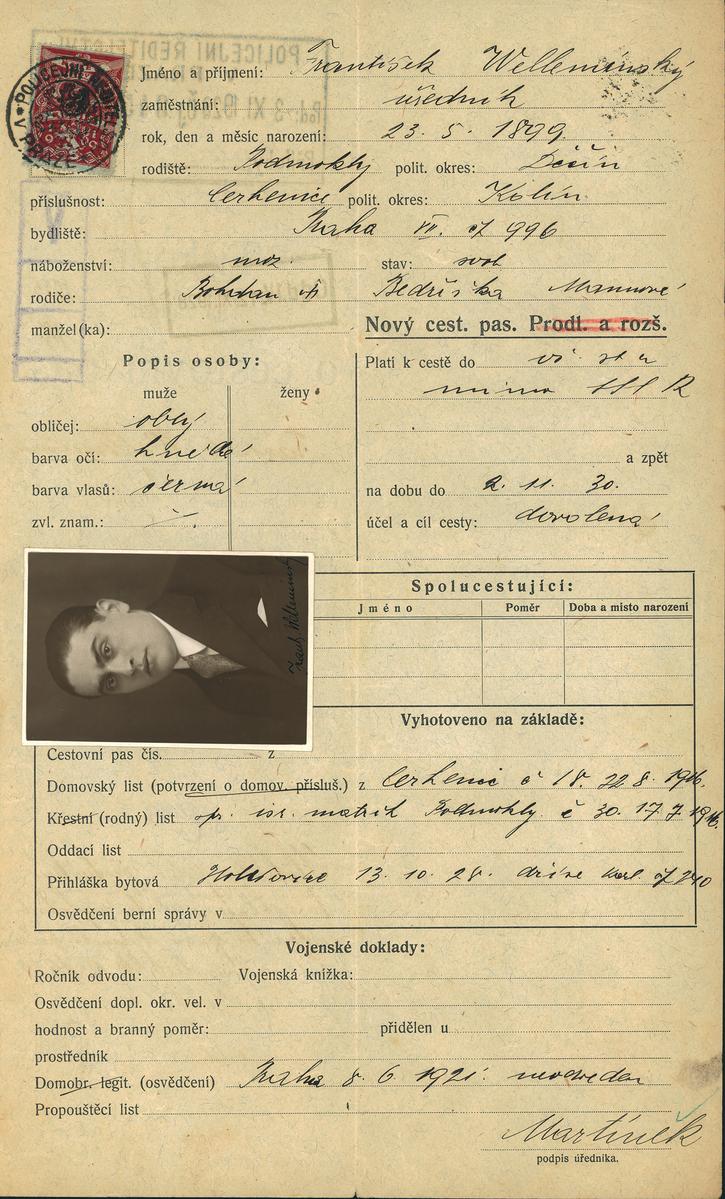 POLICEJNÍ ŘEDITELSTVÍ
V PRAZE
Jméno a příjmení: František Welleminský
zaměstnání: úředník
rok, den a měsíc narození: 23. 5. 1899
rodiště: Podmokly polit. okres: Děčín
příslušnost: Cerhenice polit. okres: Kolín
bydliště: Praha VII. čp 996
náboženství: moz. stav: svob
rodiče: Bohdan Bedřiška Mannové
manžel(ka):
Nový cest. pas. Prodl. a rozš.
Popis osoby:
muže ženy
obličej: oblý
barva očí: hnědé
barva vlasů: černá
zvl. znam.:
Platí k cestě do vš. st
mimo SSSR
a zpět
na dobu do 2. 11. 30.
účel a cíl cesty: dovolená
Spolucestující:
Jméno Poměr Doba a místo narození
Vyhotoveno na základě:
Cestovní pas čís. z
Domovský list (potvrzení o domov. přísluš.) z Cerhenic č 18. 22 8. 1916.
Křestní (rodný) list isr. matrik Podmokly č 30. 17. 7. 1916.
Oddací list
Přihláška bytová Holešovice 13. 10. 28. dříve čp 240
Osvědčení berní správy v
Vojenské doklady:
Ročník odvodu: Vojenská knížka:
Osvědčení dopl. okr. vel. v
hodnost a branný poměr: přidělen u
prostředník
Domobr. legit. (osvědčení) Praha 8. 6. 1921. neodveden
Propouštěcí list
Martínek
podpis úředníka.